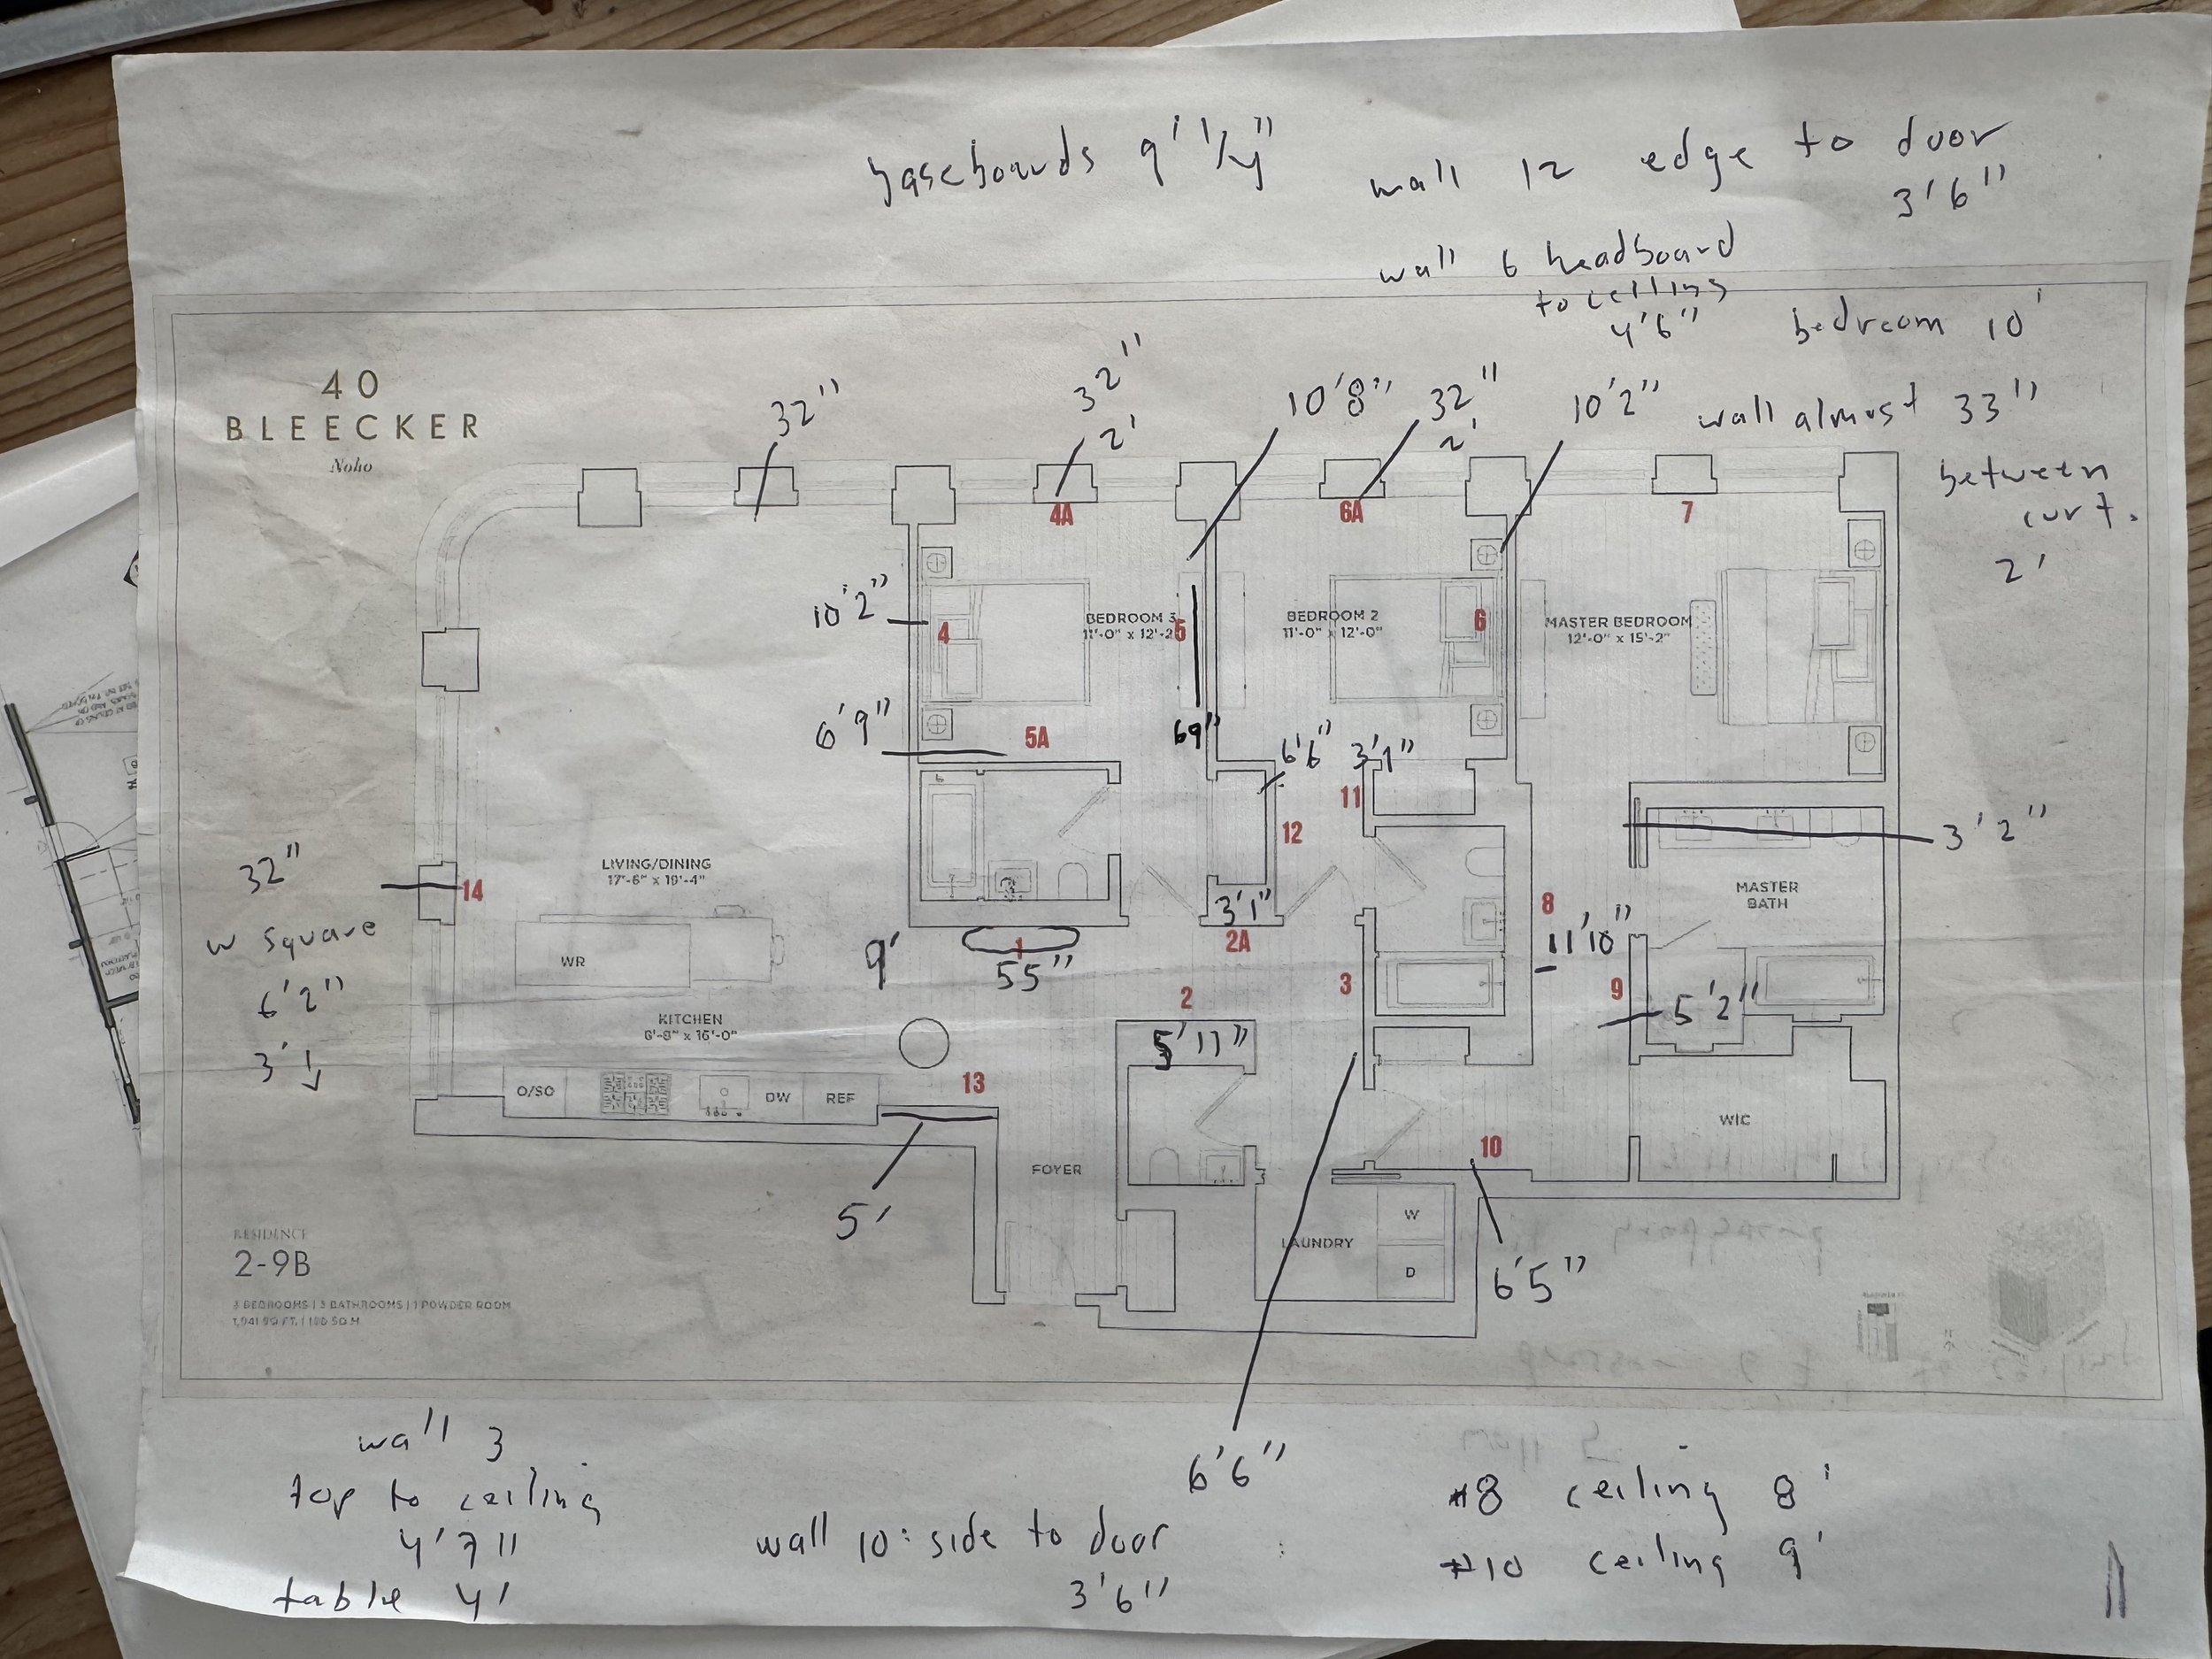 baseboards 9' 1/4"
wall 12 edge to door
3'6"
wall 6 headboard
to ceiling
4'6"
bedroom 10'
40
BLEECKER
Noho
32"
32"
2'
10'8"
32"
2'
10'2"
wall almost 33"
between
curt.
2'
4A
6A
7
10'2"
4
BEDROOM 3
11'-0" x 12'-2"
5
BEDROOM 2
11'-0" x 12'-0"
6
MASTER BEDROOM
12'-0" x 15'-2"
6'9"
5A
69"
6'6"
3'1"
11
12
3'2"
LIVING/DINING
17'-6" x 19'-4"
32"
14
w square
6'2"
3'
MASTER
BATH
8
11'10"
3'1"
2A
9'
1
55"
WR
2
3
9
5'2"
KITCHEN
8'-8" x 16'-0"
5'11"
13
O/SO
DW
REF
WIC
10
FOYER
5'
W
LAUNDRY
D
6'5"
RESIDENCE
2-9B
3 BEDROOMS | 3 BATHROOMS | 1 POWDER ROOM
1,941 SQ FT. | 180 SQ M
wall 3
top to ceiling
4'7"
table 4'
6'6"
wall 10: side to door
3'6"
#8 ceiling 8'
#10 ceiling 9'